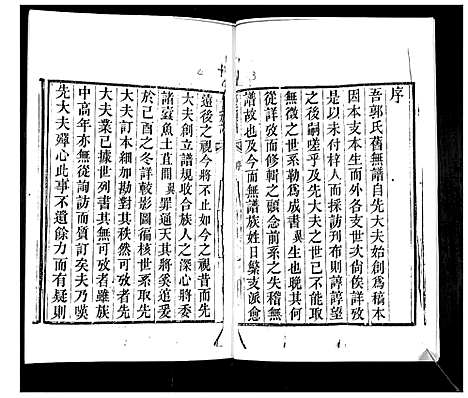 序
吾郭氏舊無譜自先大夫始創爲稿本
因本支本生而外各支世次尚俟詳攷
是以未付梓人而採訪刊布則諄諄望
之後嗣嗟乎及先大夫之世已不能取
無徵之世系勒爲成書冀生也晩其何
從詳攷而修輯之顧念前之失稽無
譜故也及今而無譜族姓日繁支派愈
遠後之視今將不止如今之視昔而先
大夫創立譜規收合族人之深心將委
諸臺魚土苴間冀罪通天其將奚追爰
於己酉之冬詳較影圖徧核世系取先
大夫訂本細加勘對其秩然可攷者先
大夫業已據世列書其無可攷者雖族
中高年亦無從詢訪而質訂矣夫乃嘆
先大夫殫心此事不遺餘力而有疑則